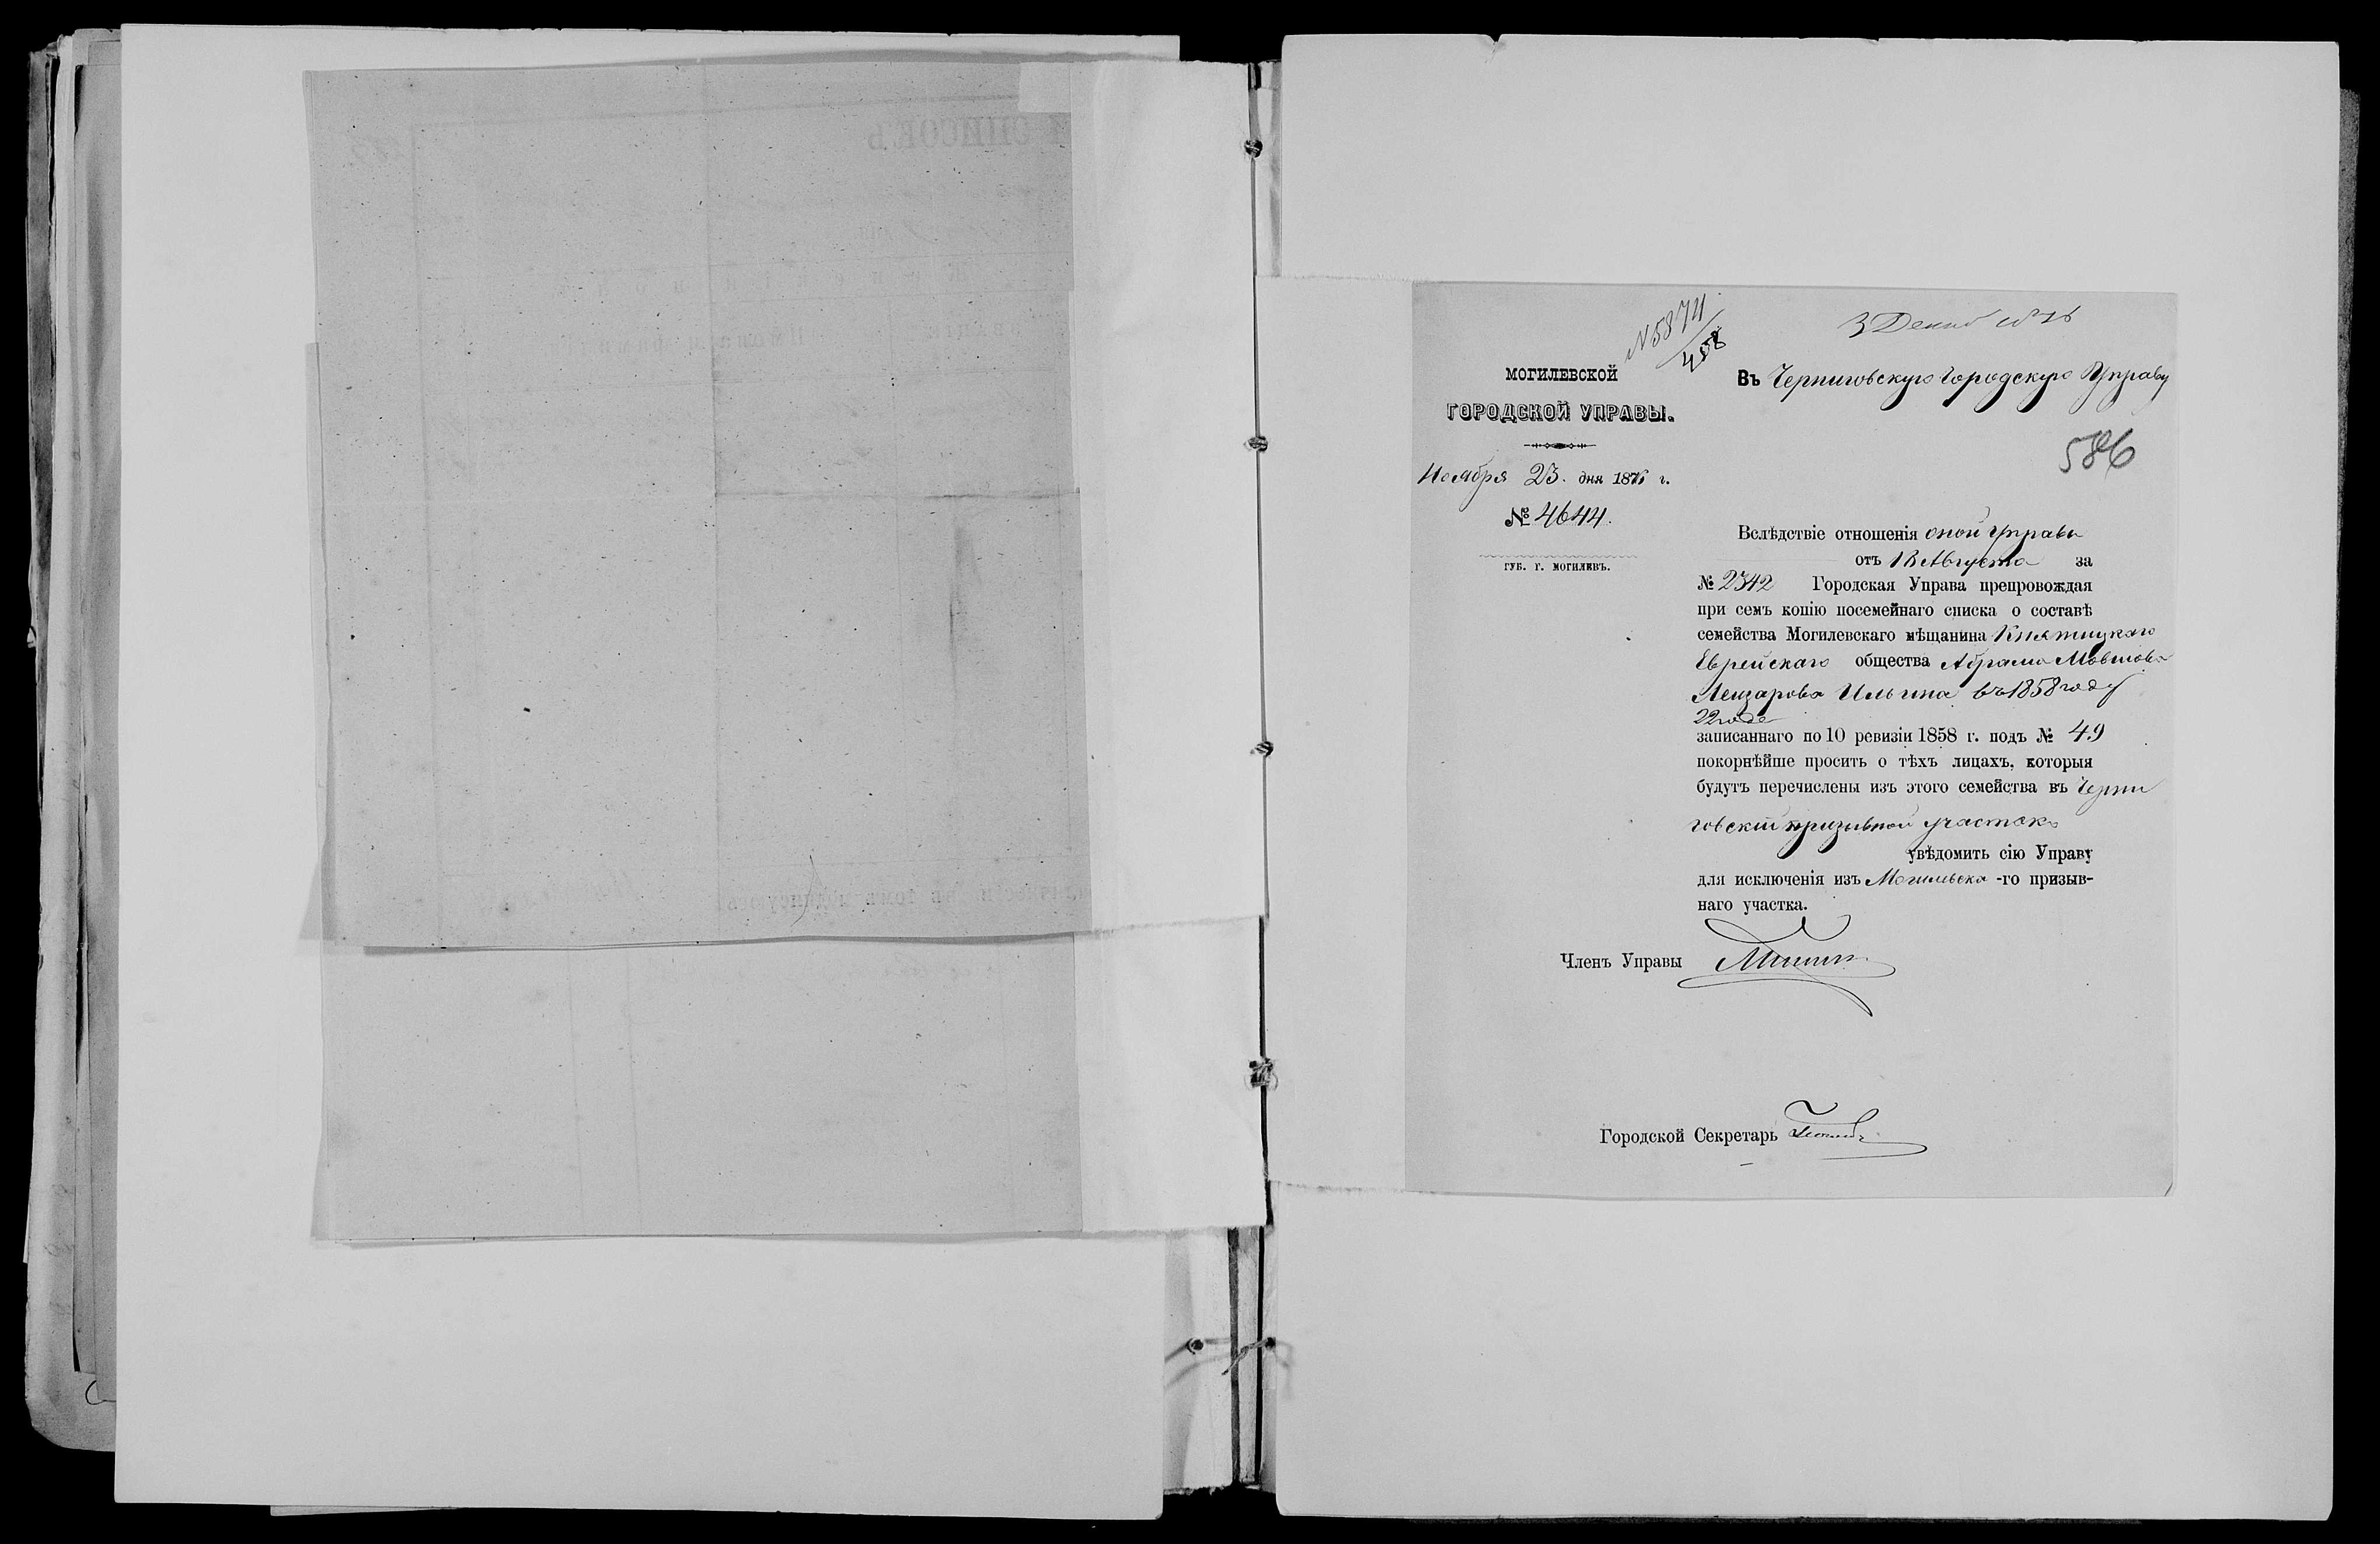 №5874
458
3 Декаб 1876
МОГИЛЕВСКОЙ
ГОРОДСКОЙ УПРАВЫ.
Въ Черниговскую Городскую Управу
586
Ноября 23. дня 1876 г.
№ 4644.
ГУБ. Г. МОГИЛЕВЪ.
Вслѣдствіе отношенія оной Управы
отъ Августа за
№ 2342 Городская Управа препровождая
при семъ копію посемейнаго списка о составѣ
семейства Могилевскаго мѣщанина Княжицкаго
Еврейскаго общества Абрама Мовшова
Лейзарова Ильина въ 1858 году
22 года
записаннаго по 10 ревизіи 1858 г. подъ № 49
покорнѣйше просить о тѣхъ лицахъ, которыя
будутъ перечислены изъ этого семейства въ Черни
говскій призывной участокъ
увѣдомить сію Управу
для исключенія изъ Могилевска -го призыв-
наго участка.
Членъ Управы
Городской Секретарь